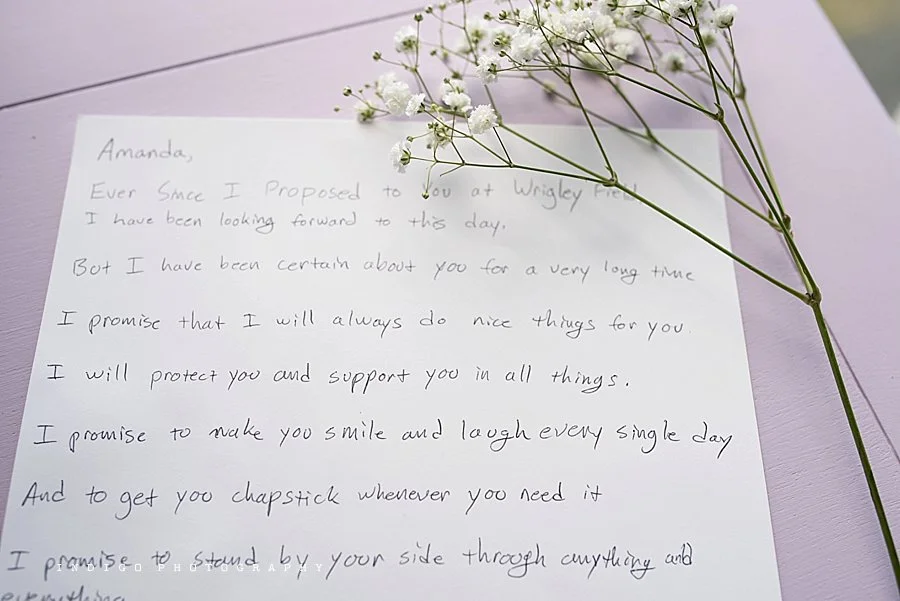 Amanda,
Ever Since I Proposed to you at Wrigley Field
I have been looking forward to this day.
But I have been certain about you for a very long time
I promise that I will always do nice things for you.
I will protect you and support you in all things.
I promise to make you smile and laugh every single day
And to get you chapstick whenever you need it
I promise to stand by your side through anything and
everything
INDIGO PHOTOGRAPHY